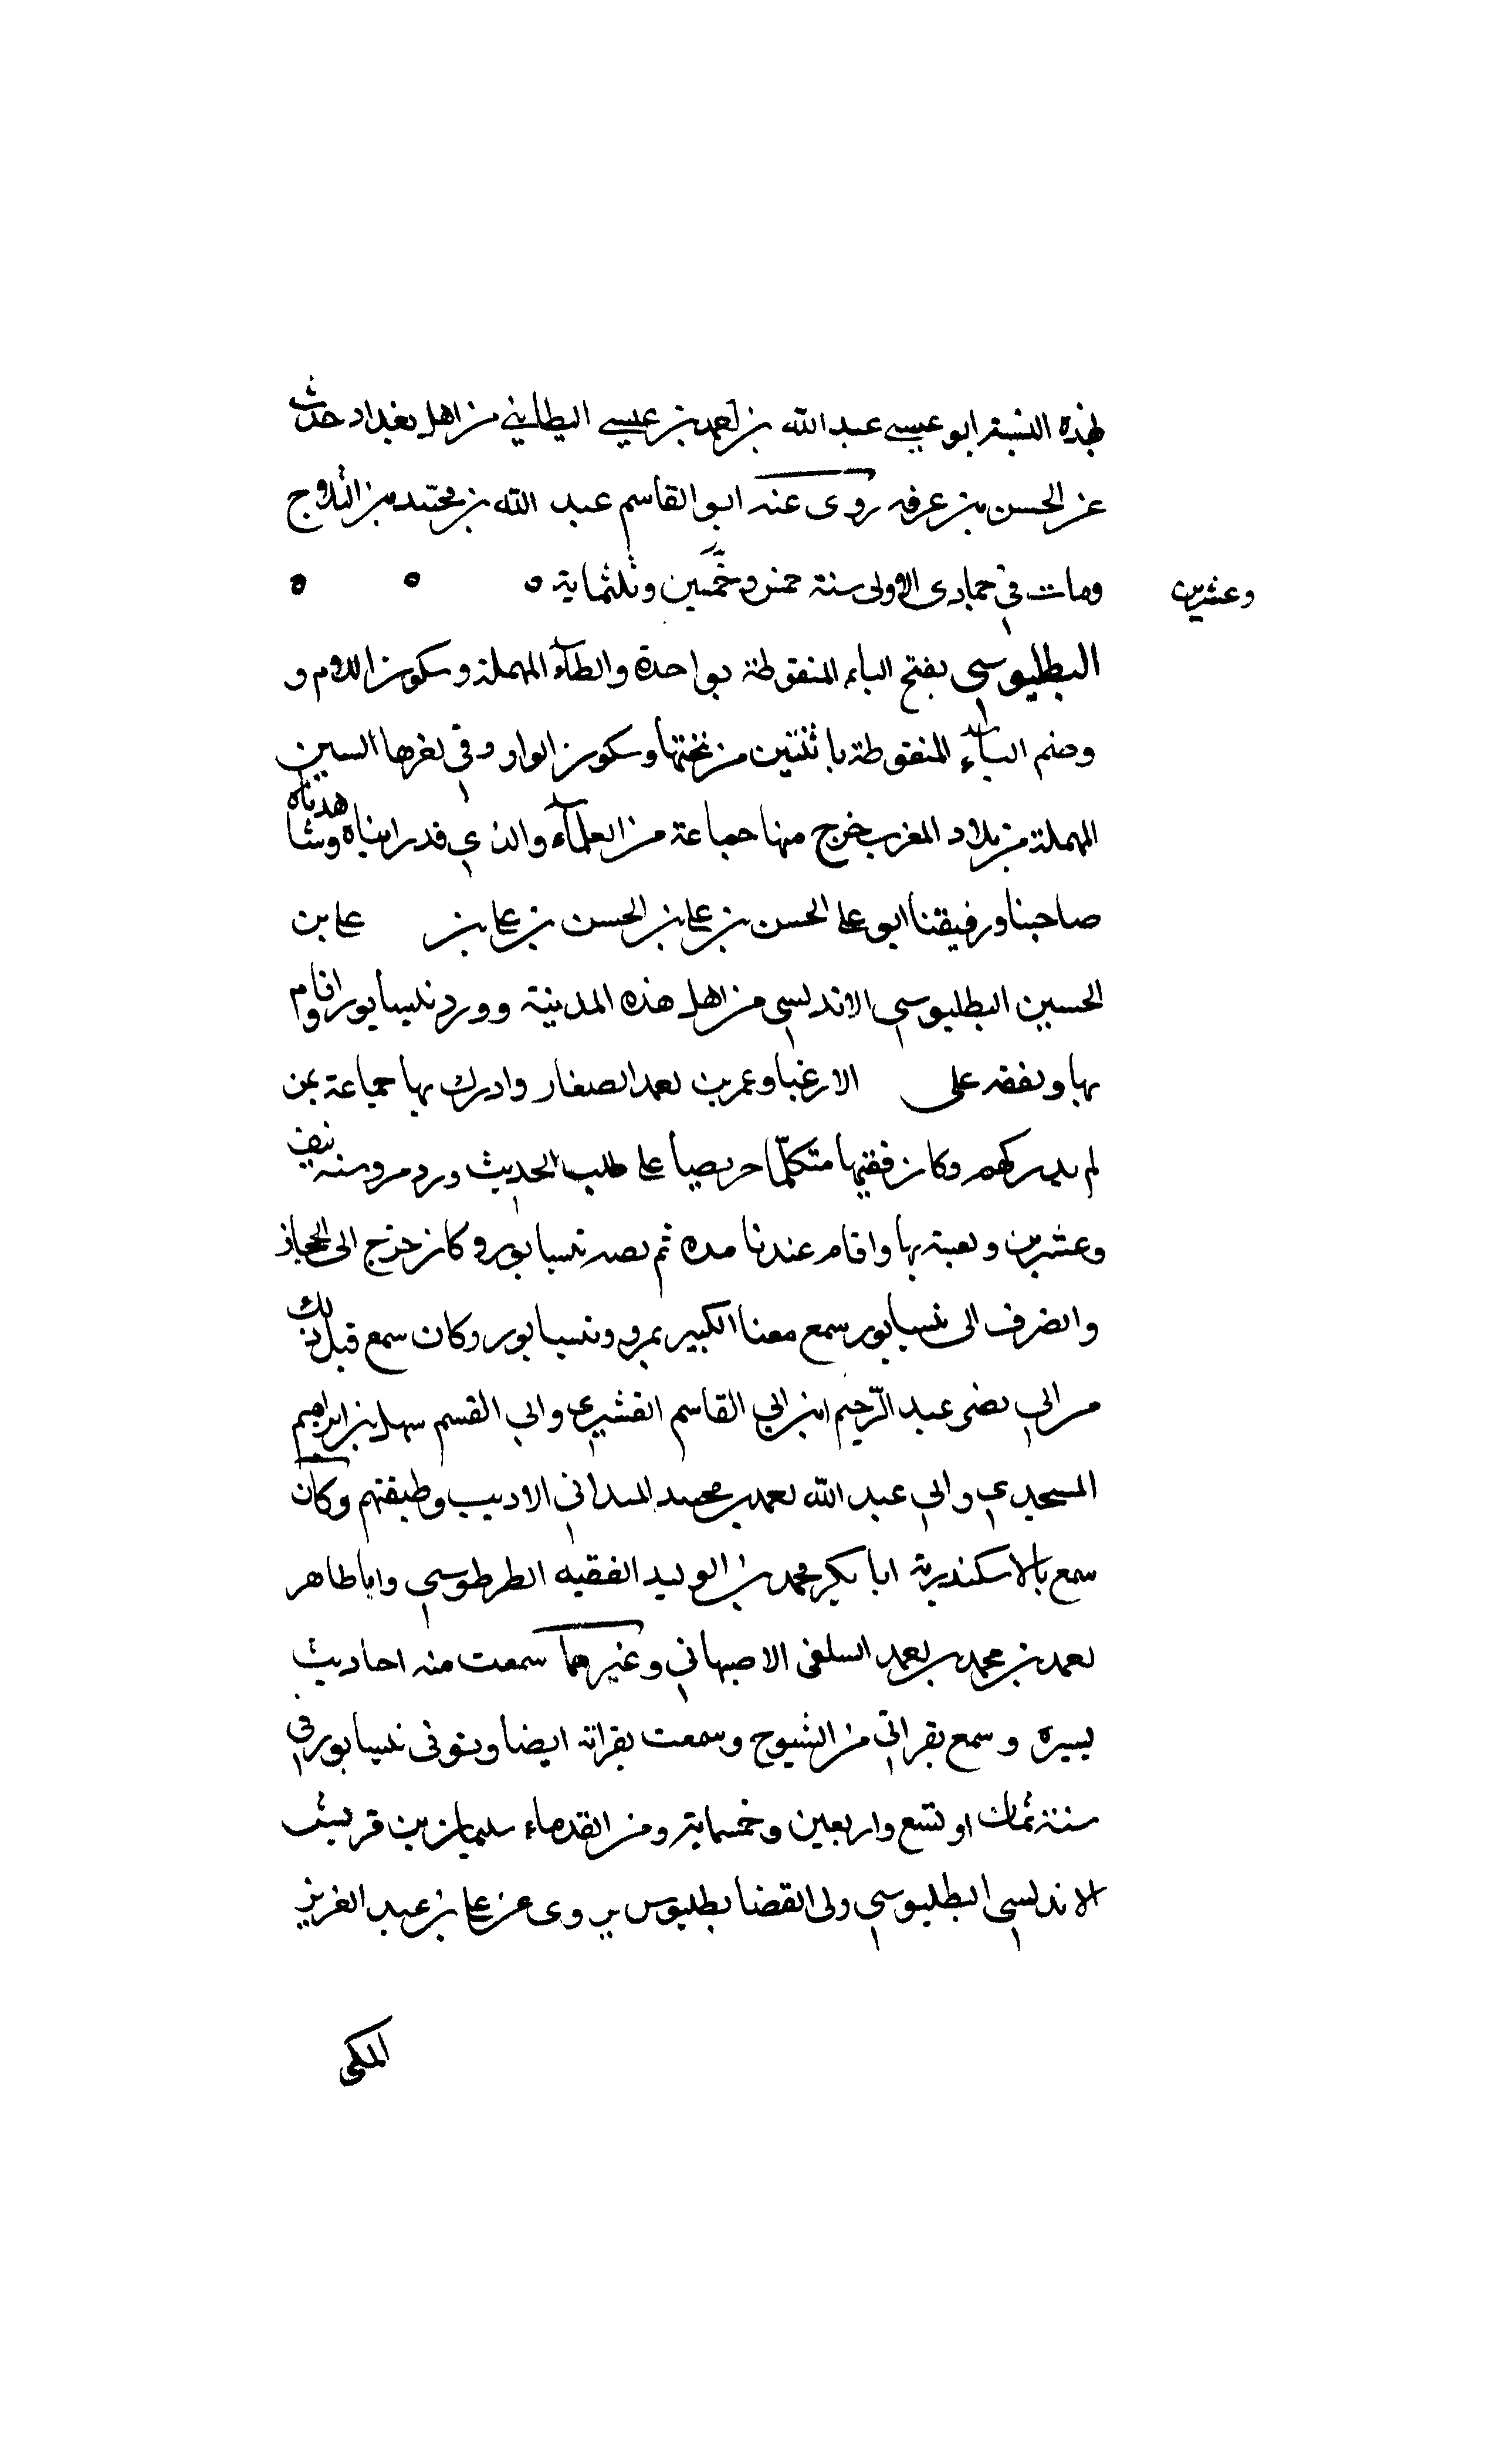 بهذه النسبة ابو عيسى عبد الله بن احمد بن عيسى البطايني من اهل بغداد حدث
عن الحسن بن عرفه روى عنه ابو القاسم عبد الله بن محمد بن الثلاج
ومات في جمادى الاولى سنة خمس وخمسين وثلثماية ه ه ه
وعشرين
البطليوسي بفتح الباء المنقوطة بواحدة والطاء المهملة وسكون اللام و
وضم الياء المنقوطة باثنتين من تحتها وسكون الواو وفي اخرها السين
المهملة من بلاد المغرب خرج منها جماعة من العلماء والذي قد رايناه وشاهدناه
صاحبنا ورفيقنا ابو على الحسن بن على بن الحسن بن على بن على بن
الحسين البطليوسي الاندلسي من اهل هذه المدينة وورد نيسابور واقام
بها وتفقه على الارغيا وعمر بن احمد الصفار وادرك بها جماعة ممن
لم يدركهم وكان فقيها متكلما حريصا على طلب الحديث ورد مرو سنة نيف
وعشرين ولقيته بها واقام عندنا مده ثم نيسابور وكان خرج الى الحجاز
وانصرف الى نيسابور سمع معنا الكبير بمرو ونيسابور وكان سمع قبل ذلك
من ابي نصر عبد الرحيم ابن ابي القاسم القشيري وابي القسم سهل بن ابراهيم
المسجدي وابي عبد الله احمد بن محمد الميداني الاديب وطبقتهم وكان
سمع بالاسكندرية ابا بكر محمد بن الوليد الفقيه الطرطوسي وابا طاهر
احمد بن محمد بن احمد السلفى الاصبهاني وغيرهما سمعت منه احاديث
يسيره وسمع بقراتي من الشيوخ وسمعت بقراته ايضا وتوفى نيسابور في
سنة ثمان او تسع واربعين وخمسماية ومن القدماء سليمان بن قريش
الاندلسي البطليوسي ولى القضا بطليوس يروى عن على بن عبد العزيز
المكى